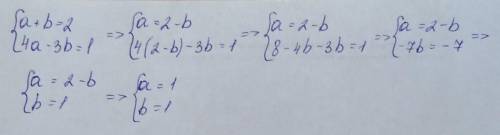 {a+b=2 {4a-3b=1 => {a=2-b {4(2-b)-3b=1 => {a=2-b {8-4b-3b=1 => {a=2-b {-7b=-7 =>
{a=2-b {b=1 => {a=1 {b=1